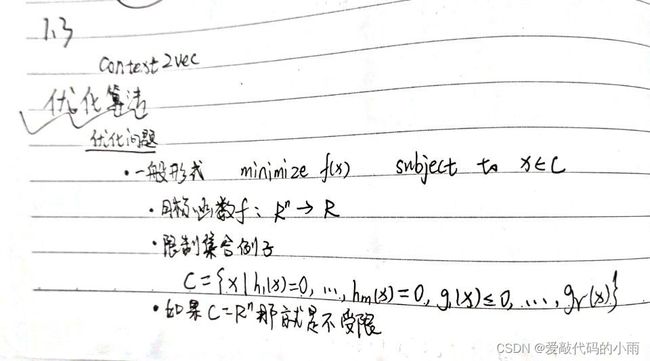 1.3
context2vec
优化算法
优化问题
·一般形式 minimize f(x) subject to x∈C
·目标函数f: Rⁿ → R
·限制集合例子
C={x|h₁(x)=0, ..., hₘ(x)=0, g₁(x)≤0, ..., gᵣ(x)}
·如果C=Rⁿ那就是不受限
CSDN @爱敲代码的小雨